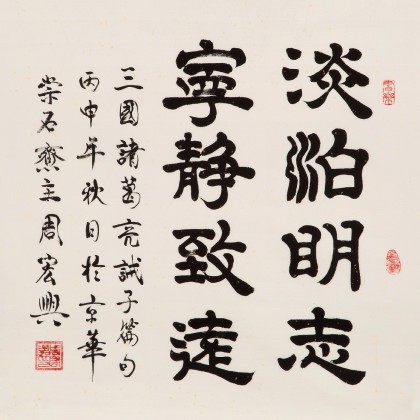 淡泊明志
寧静致遠
三國諸葛亮誡子篇句
丙申年秋日於京華
崇石齋主周宏興